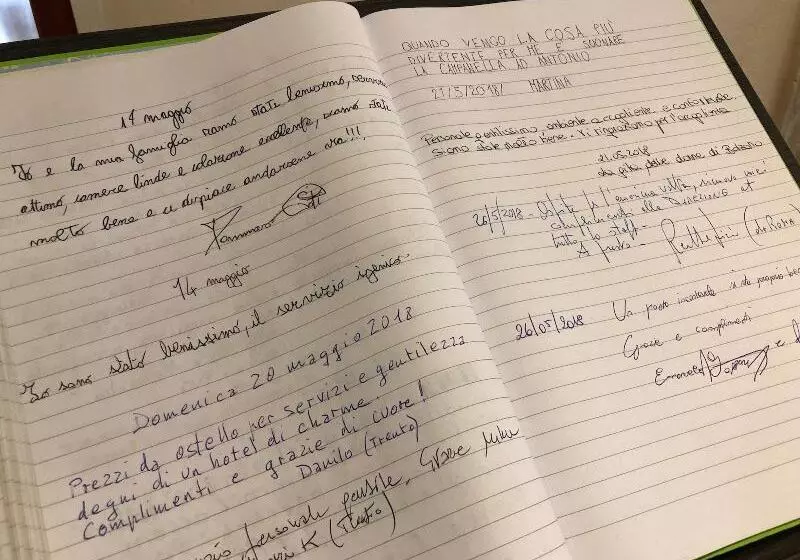 14 maggio
Io e la mia famiglia siamo stati benissimo,
ottimo, camere linde e colazione eccellente, siamo stati
molto bene e ci dispiace andarcene via!!!
Tommaso
14 maggio
Io sono stato benissimo, il servizio igenico.
Domenica 20 maggio 2018
Prezzi da ostello per servizi e gentilezza
degni di un hotel di charme.
Complimenti e grazie di cuore!
Danilo (Trento)
personale gentile, Grazie
K (Trento)
QUANDO VENGO LA COSA PIÙ
DIVERTENTE PER ME È SUONARE
LA CAMPANELLA AD ANTONIO
21/5/2018/ MARTINA
Personale gentilissimo, ambiente accogliente e confortevole.
Siamo state molto bene. Vi ringraziamo per l'accoglienza
21.05.2018
delle donne di Bolzano
20/5/2018 - Ospite per l'ennesima volta, rinnovo i miei
complimenti alla Direzione et
tutto lo staff.
A presto -
26/05/2018 Un posto incantevole si sta proprio bene
Grazie e complimenti
Emanuela